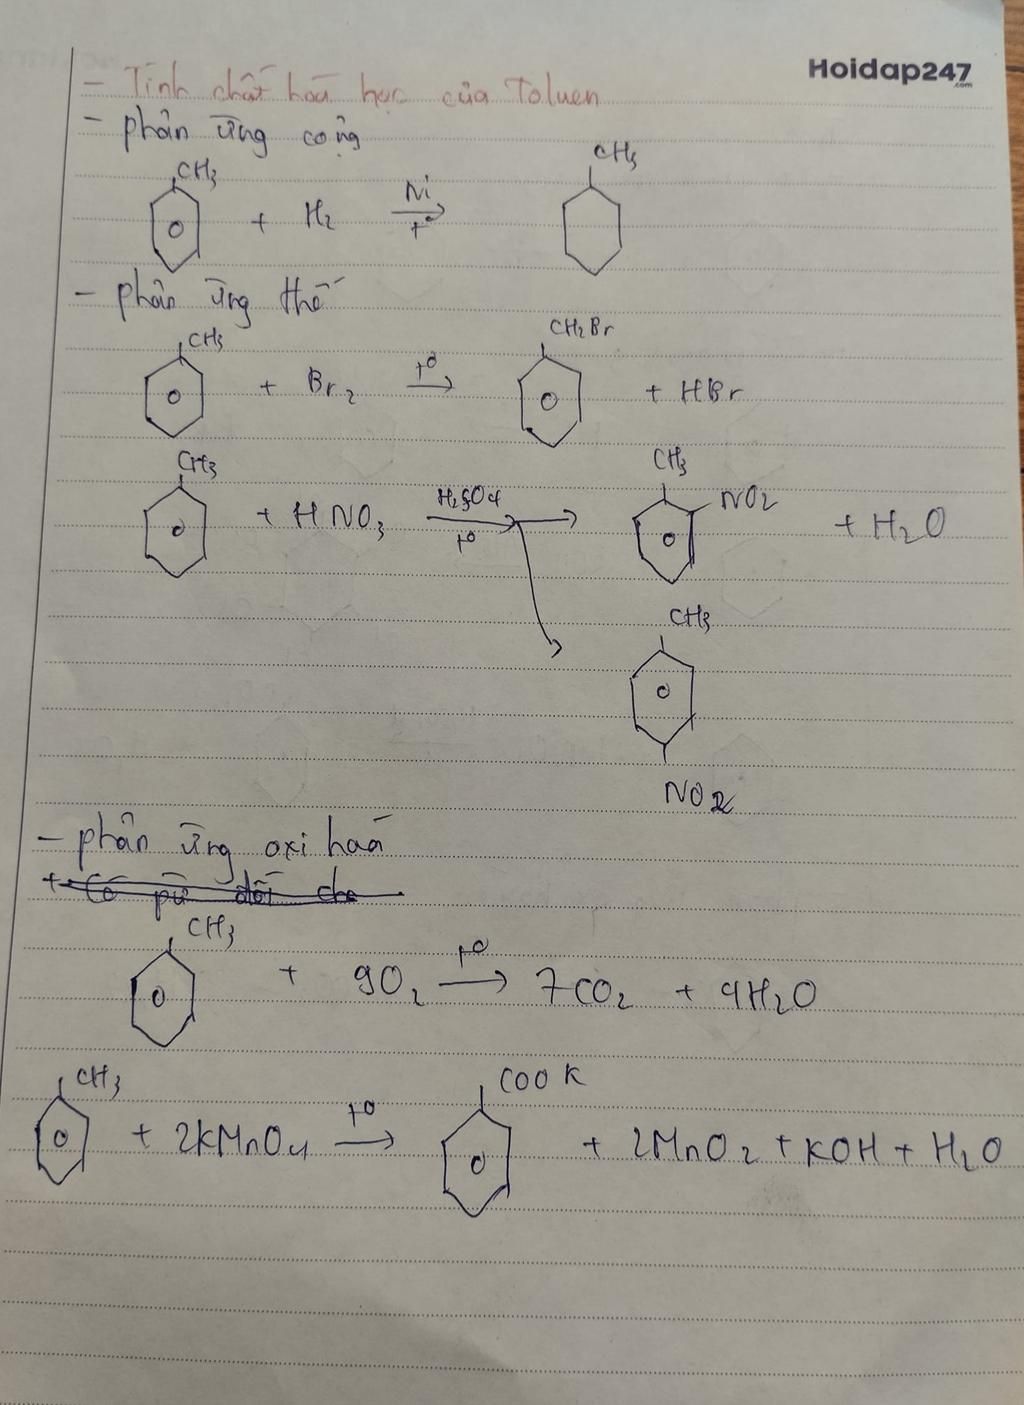 Hoidap247
.com
- Tính chất hoá học của Toluen
- phản ứng cộng
CH3 + H2 Ni t° CH3
- phản ứng thế
CH3 + Br2 t° CH2Br + HBr
CH3 + HNO3 H2SO4 t° CH3 NO2 + H2O
CH3
NO2
- phản ứng oxi hoá
+ Có pứ đối cho
CH3 + 9O2 t° 7CO2 + 4H2O
CH3 + 2KMnO4 t° COOK + 2MnO2 + KOH + H2O